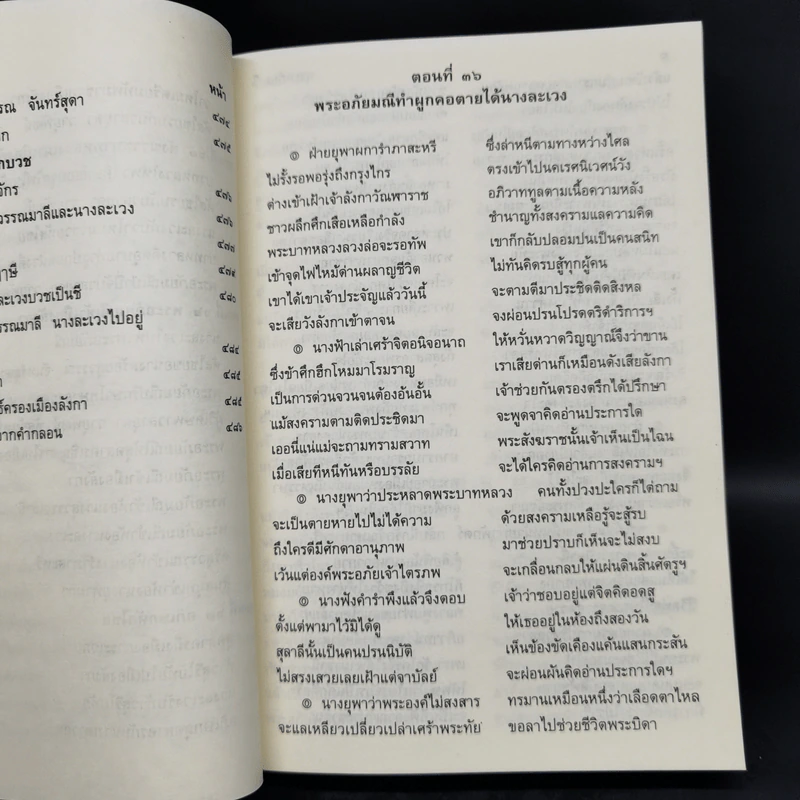 หน้า
รณ จันทร์สุดา ๔๗๔
ก ๔๗๕
กบวช
จักร ๔๗๖
วรรณมาลีและนางละเวง ๔๗๖
๔๗๗
าษี ๔๗๙
ละเวงบวชเป็นชี ๔๘๐
รรณมาลี นางละเวงไปอยู่
๔๘๔
า ๔๘๕
ธิ์ครองเมืองลังกา ๔๘๕
ากคำกลอน ๔๘๖
ตอนที่ ๓๖
พระอภัยมณีทำผูกคอตายได้นางละเวง
๏ ฝ่ายยุพาผการำภาสะหรี ซึ่งลำหนีตามทางหว่างไศล
ไม่รั้งรอพอรุ่งถึงกรุงไกร ตรงเข้าไปนคเรศนิเวศน์วัง
ต่างเข้าเฝ้าเจ้าลังกาวัณพาราช อภิวาททูลตามเนื้อความหลัง
ชาวผลึกศึกเสือเหลือกำลัง ชำนาญทั้งสงครามแลความคิด
พระบาทหลวงลวงล่อจะรอทัพ เขาก็กลับปลอมปนเป็นคนสนิท
เข้าจุดไฟไหม้ด่านผลาญชีวิต ไม่ทันคิดรบสู้ทุกผู้คน
เขาได้เขาเจ้าประจัญแล้ววันนี้ จะตามตีมาประชิดติดสิงหล
จะเสียวังลังกาเข้าตาจน จงผ่อนปรนโปรดตริดำริการฯ
๏ นางฟ้าเล่าเศร้าจิตอนิจอนาถ ให้หวั่นหวาดวิญญาณ์จึงว่าขาน
ซึ่งข้าศึกฮึกโหมมาโรมราญ เราเสียด่านก็เหมือนดังเสียลังกา
เป็นการด่วนจวนจนต้องอันอั้น เจ้าช่วยกันตรองตรึกได้ปรึกษา
แม้สงครามตามติดประชิดมา จะพูดจาคิดอ่านประการใด
เออนี่แน่แม่จะถามทรามสวาท พระสังฆราชนั้นเจ้าเห็นเป็นไฉน
เมื่อเสียทีหนีทันหรือบรรลัย จะได้ใครคิดอ่านการสงครามฯ
๏ นางยุพาว่าประหลาดพระบาทหลวง คนทั้งปวงปะใครก็ไต่ถาม
จะเป็นตายหายไปไม่ได้ความ ด้วยสงครามเหลือรู้จะสู้รบ
ถึงใครดีมีศักดาอานุภาพ มาช่วยปราบก็เห็นจะไม่สงบ
เว้นแต่องค์พระอภัยเจ้าไตรภพ จะเกลื่อนกลบให้แผ่นดินสิ้นศัตรูฯ
๏ นางฟังคำรำพึงแล้วจึงตอบ เจ้าว่าชอบอยู่แต่จิตคิดอดสู
ตั้งแต่พามาไว้มิได้ดู ให้เธออยู่ในห้องถึงสองวัน
สุลาลีนั้นเป็นคนปรนนิบัติ เห็นข้องขัดเคืองแค้นแสนกระสัน
ไม่สรงเสวยเลยเฝ้าแต่จาบัลย์ จะผ่อนผันคิดอ่านประการใดฯ
๏ นางยุพาว่าพระองค์ไม่สงสาร ทรมานเหมือนหนึ่งว่าเลือดตาไหล
จะแลเหลียวเปลี่ยวเปล่าเศร้าพระทัย ขอลาไปช่วยชีวิตพระบิดา